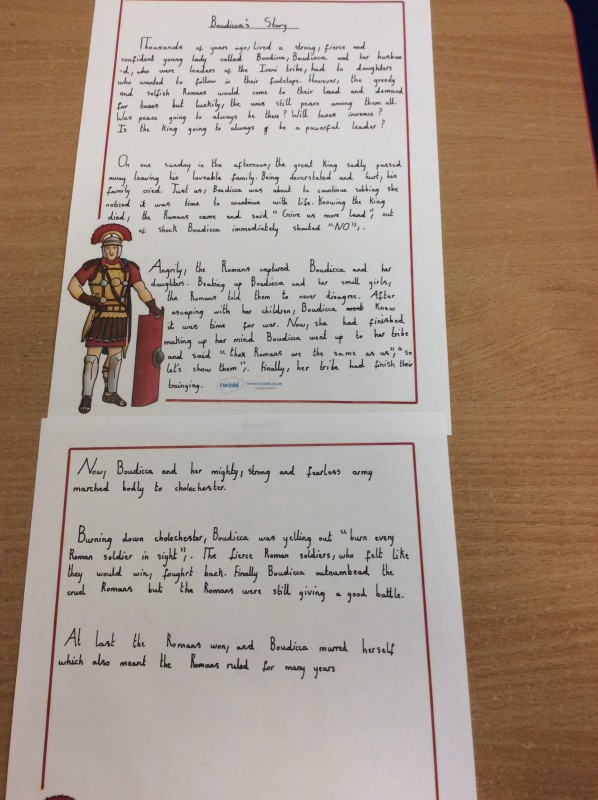 Boudicca's Story
Thousands of years ago, lived a strong, fierce and
confident young lady called Boudicca, Boudicca and her husban
-d, who were leaders of the Iceni tribe, had to daughters
who wanted to follow in their footsteps. However, the greedy
and selfish Romans would come to their land and demand
for taxes but luckily, the was still peace among them all.
Was peace going to always be there? Will taxes increace?
Is the King going to always be a powerful leader?
On one sunday in the afternoon, the great King sadly passed
away leaving his loveable family. Being deverstated and hurt, his
family cried. Just as, Boudicca was about to continue sobbing she
noticed it was time to countinue with life. Knowing the King
died, the Romans came and said "Give us more land", out
of shock Boudicca immediately shouted "NO",.
Angrily, the Romans captured Boudicca and her
daughters. Beating up Boudicca and her small girls,
the Romans told them to never disagree. After
escaping with her children, Boudicca knew
it was time for war. Now, she had finished
making up her mind Boudicca went up to her tribe
and said "thex Romans are the same as us", "so
let's show them",. Finally, her tribe had finish their
trainging.
twinkl www.twinkl.co.uk
Now, Boudicca and her mighty, strong and fearless army
marched bodly to cholechester.
Burning down cholechester, Boudicca was yelling out "burn every
Roman soldier in sight",. The fierce Roman soldiers, who felt like
they would win, foughrt back. Finally Boudicca outnumbead the
cruel Romans but the Romans were still giving a good battle.
At last the Romans won, and Boudicca murred herself
which also meant the Romans ruled for many years